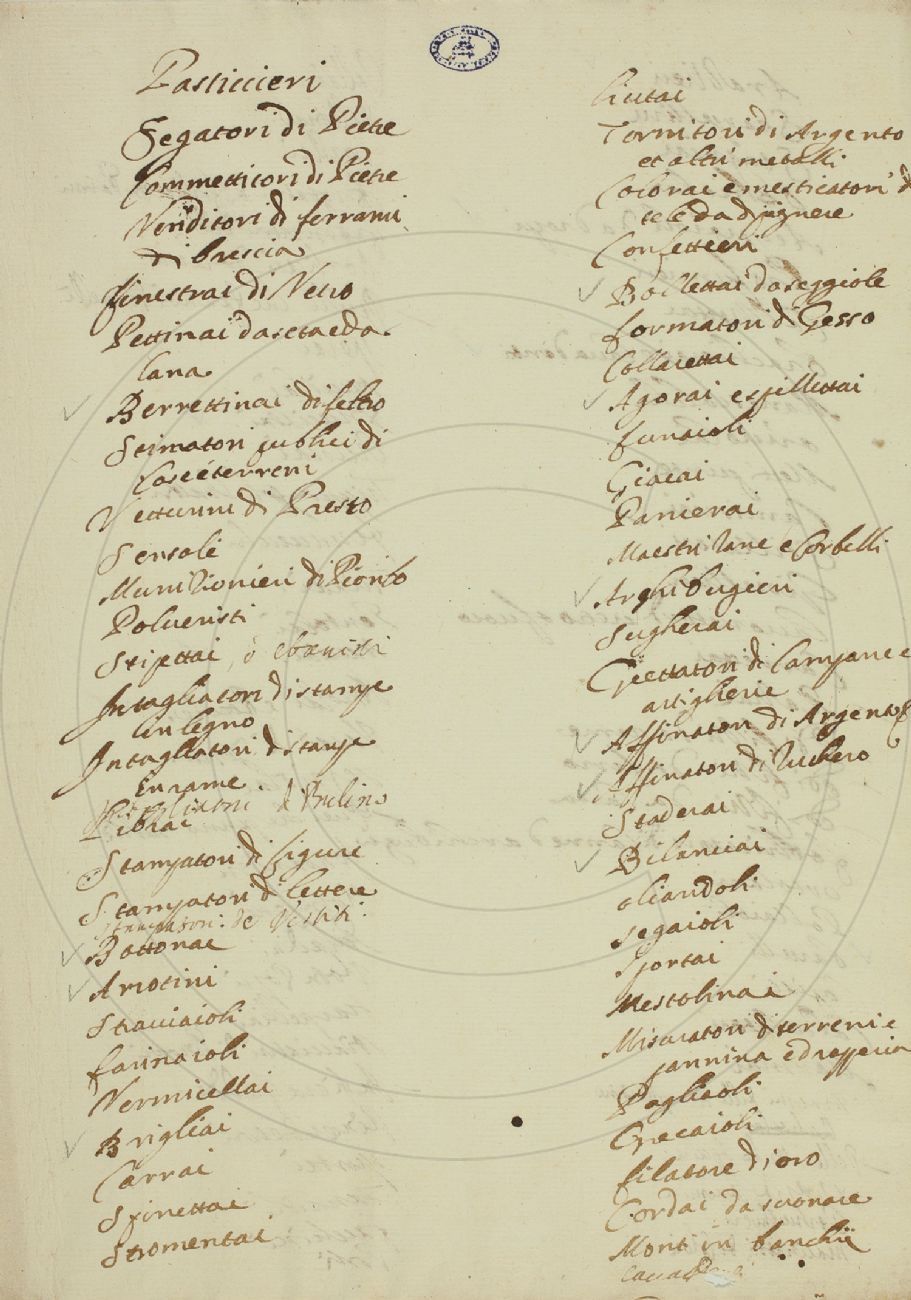 Pasticcieri
Segatori di Pietre
Commettitori di Pietre
Venditori di ferrami
di brescia
finestrai di Vetro
Pettinai da seta e da
lana
Berrettinai di feltro
Stimatori publici di
Case e terreni
Vetturini di Presto
Sensali
Munizionieri di Piombo
Polueristi
Stipettai, ò ebanisti
Intagliatori di stampe
in legno
Intagliatori di stampe
in rame
di Bulino
Librai
Stampatori di figure
Stampatori di lettere
Stampatori de Vestiti
Bottonai
Arrotini
Stacciaioli
farinaioli
Vermicellai
Brigliai
Carrai
Spinettai
Stromentai
Liutai
Tornitori di Argento
et altri metalli
Colorai e mesticatori di
tele da dipignere
Confettieri
Bollettai da seggiole
formatori di Gesso
Collarettai
Agorai e spillettai
funaioli
Giacai
Panierai
Maestri Zane e Corbelli
Archibugieri
Sugherai
Giettatori di Campane e
artiglierie
Affinatori di Argento
Affinatori di Zuchero
Staderai
Bilanciai
oliandoli
segaioli
sportai
Mestolinai
Misuratori di terreni e
pannina e drapperia
Pagliaoli
Crecaioli
filatore d'oro
Cordai da suonare
Monti in banchi